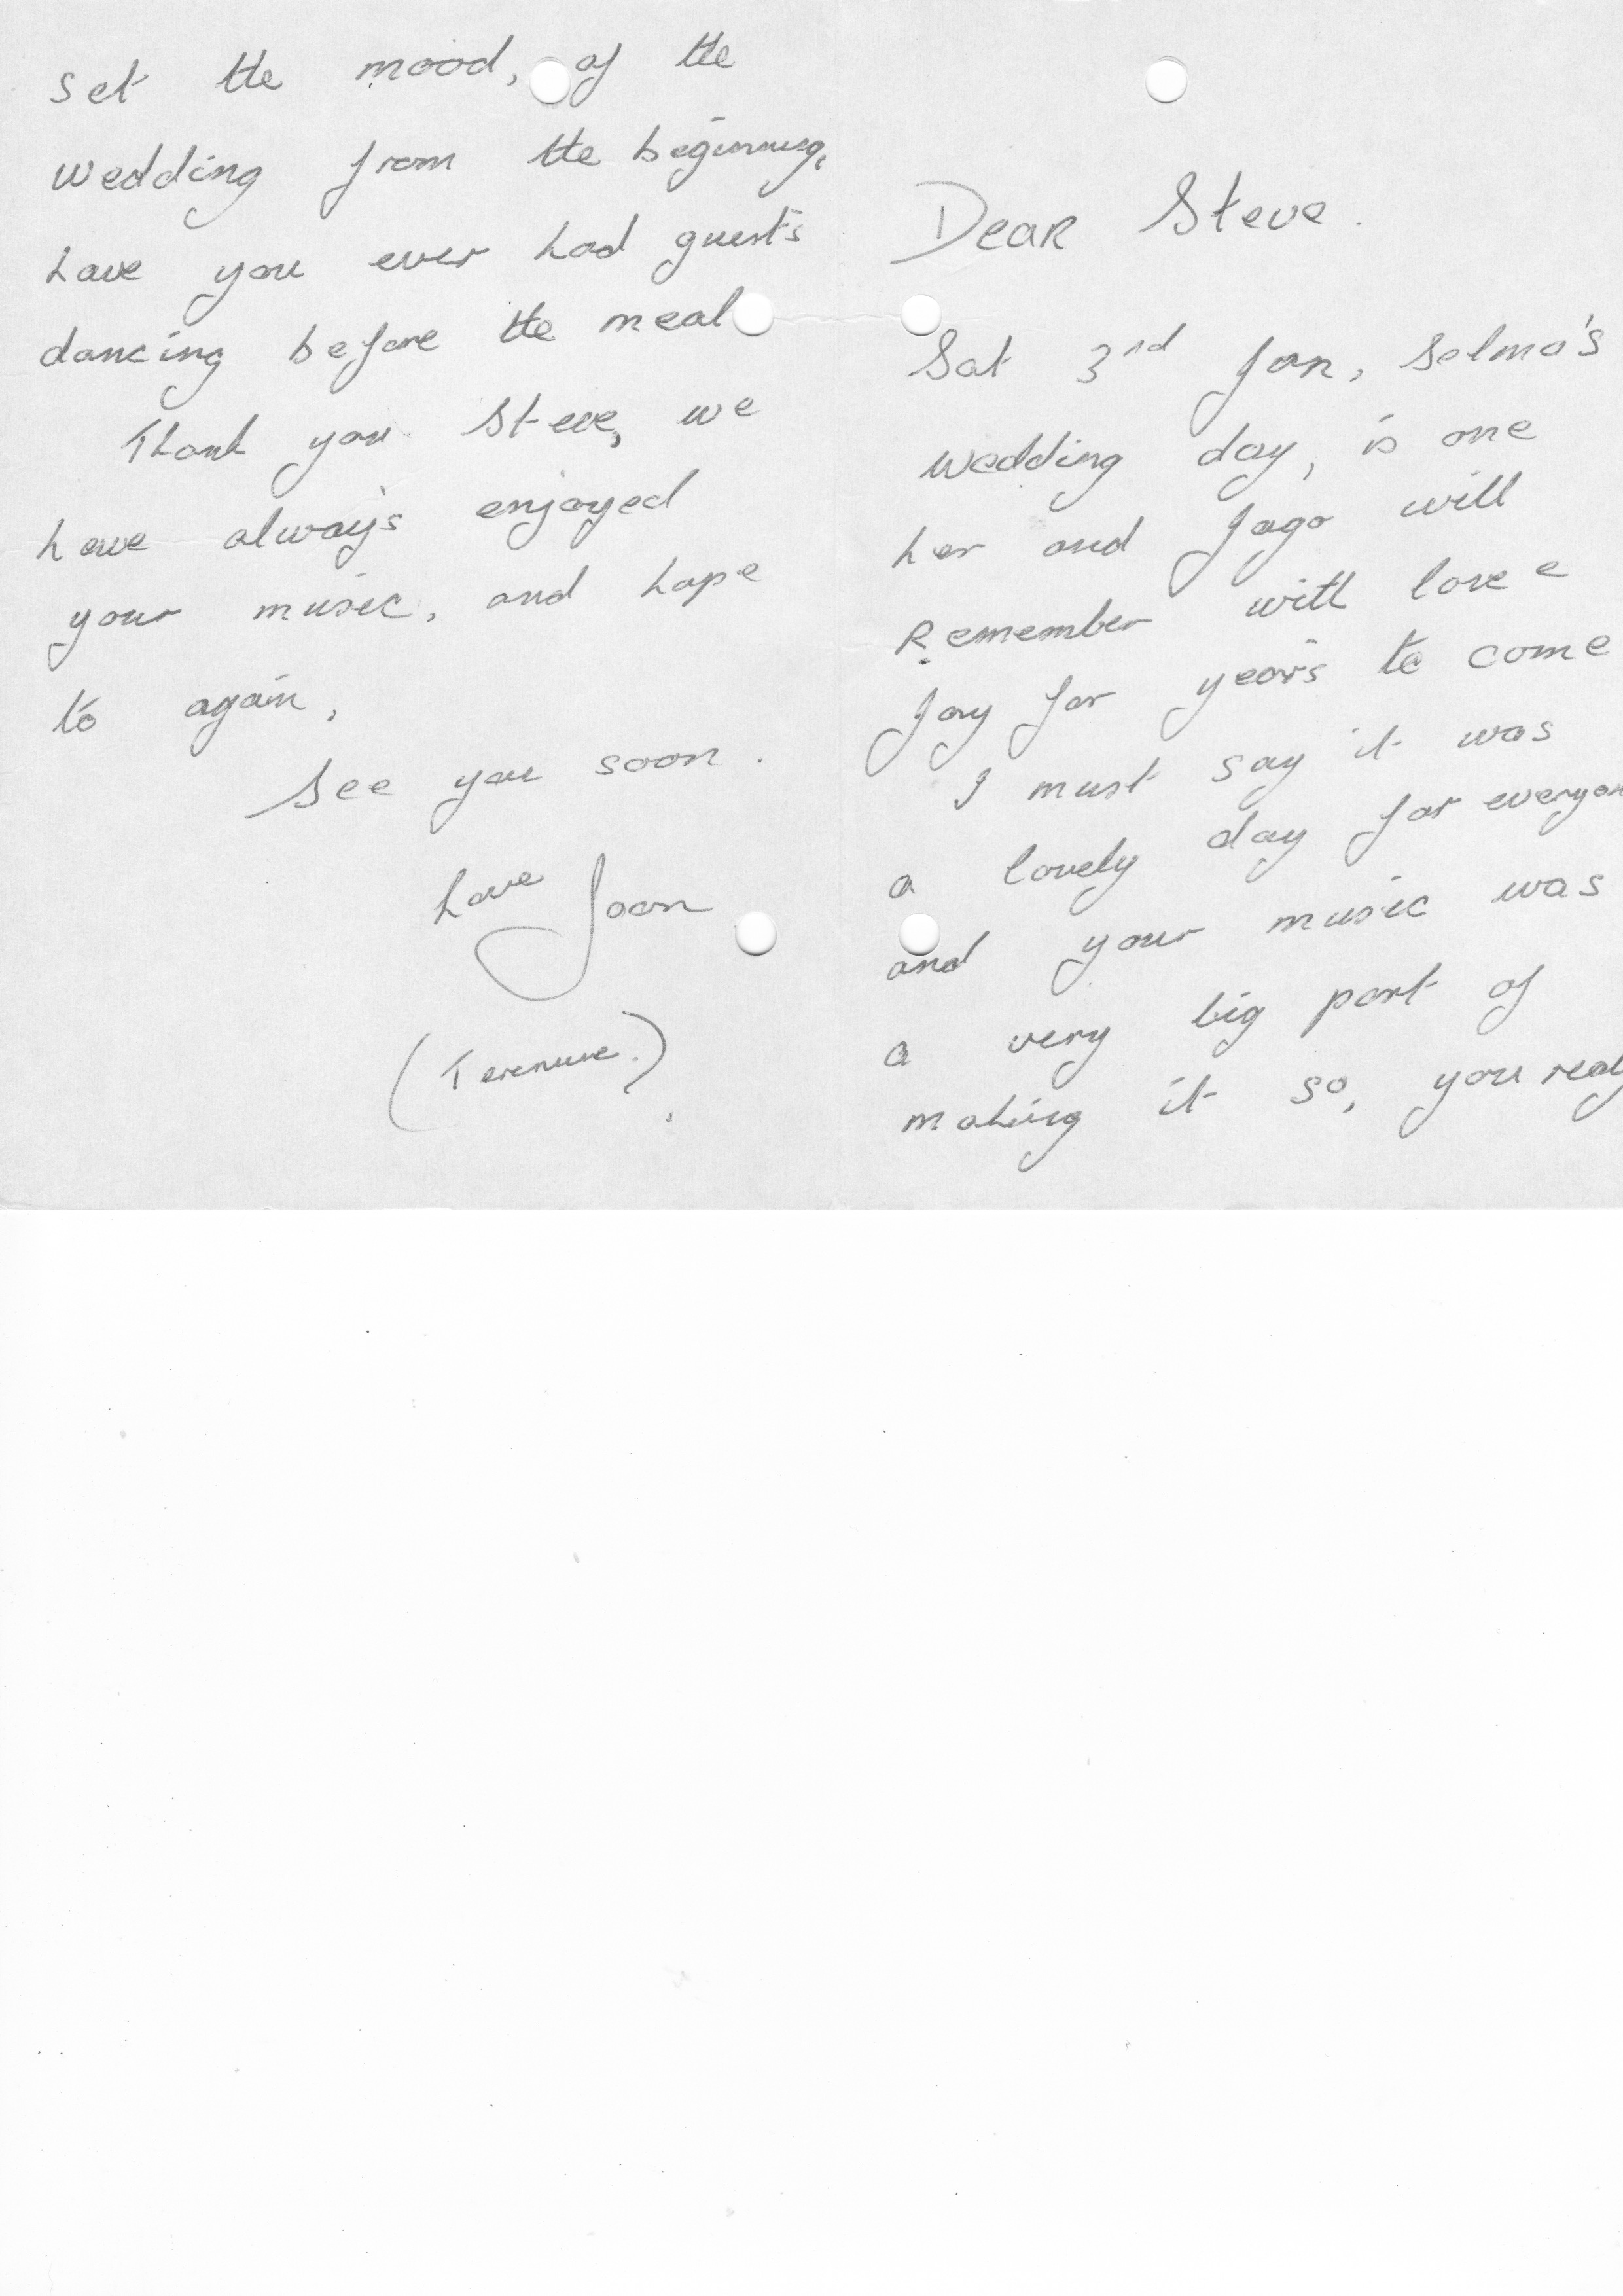 Dear Steve.
Sat 3rd Jan, Selma's
wedding day, is one
her and Jago will
Remember with love e
Joy for years to come
I must say it was
a lovely day for everyon
and your music was
a very big part of
making it so, you real
set the mood, of the
wedding from the beginning,
have you ever had guests
dancing before the meal
Thank you Steve, we
have always enjoyed
your music, and hope
to again,
See you soon.
Love Joan
(Terenure.)